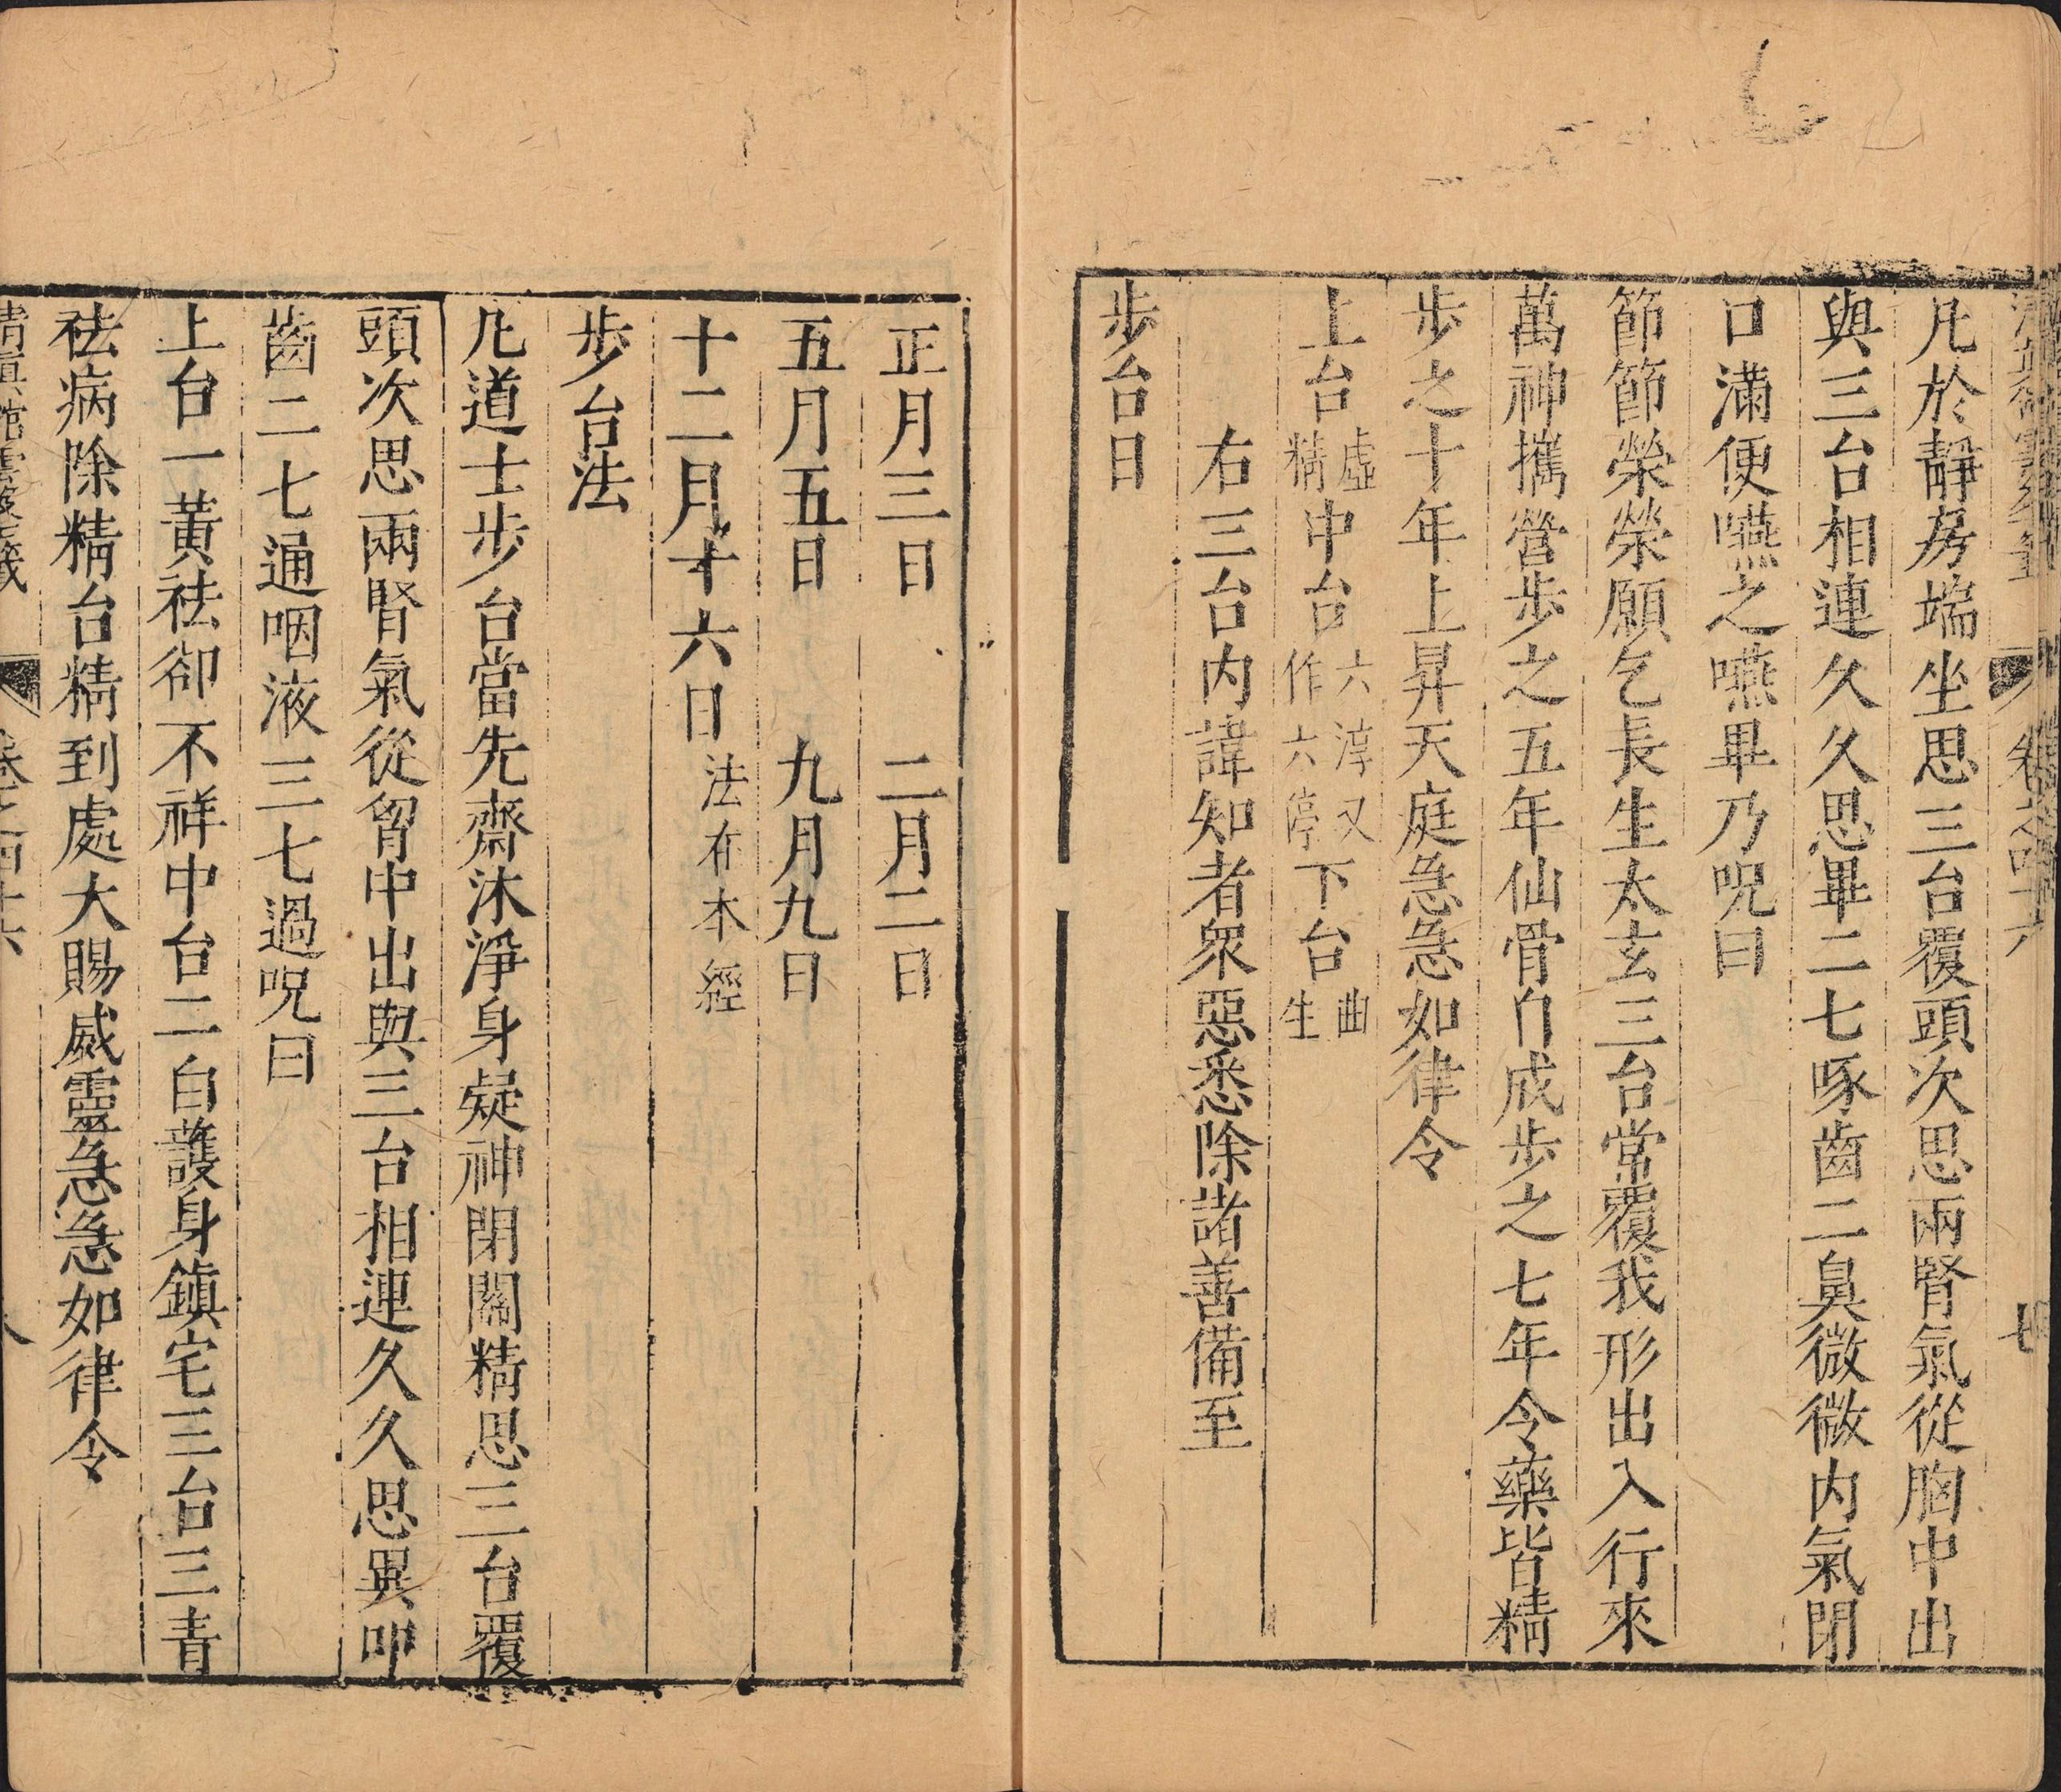 凢於靜房端坐思三台覆頭次思兩腎氣從胸中出
與三台相連久久思畢二七啄齒二臭微微内氣閉
口滿便嚥之嚥畢乃呪曰
節節榮榮願乞長生太玄三台常覆我形出入行來
萬神攜營步之五年仙骨自成步之七年令藥皆精
步之十年上昇天庭急急如律令
上台虛精中台六淳又作六停下台曲生
右三台内諱知者衆惡悉除諸善備至
步台日
正月三日 二月二日
五月五日 九月九日
十二月十六日法在本經
步台法
凢道士步台當先齋沐淨身凝神閉關精思三台覆
頭次思兩腎氣從胷中出與三台相連久久思異叩
齒二七通咽液三七過呪曰
上台一黃祛卻不祥中台二白護身鎮宅三台三青
祛病除精台精到處大賜威靈急急如律令
清真館雲笈七籤 卷之四十六 八